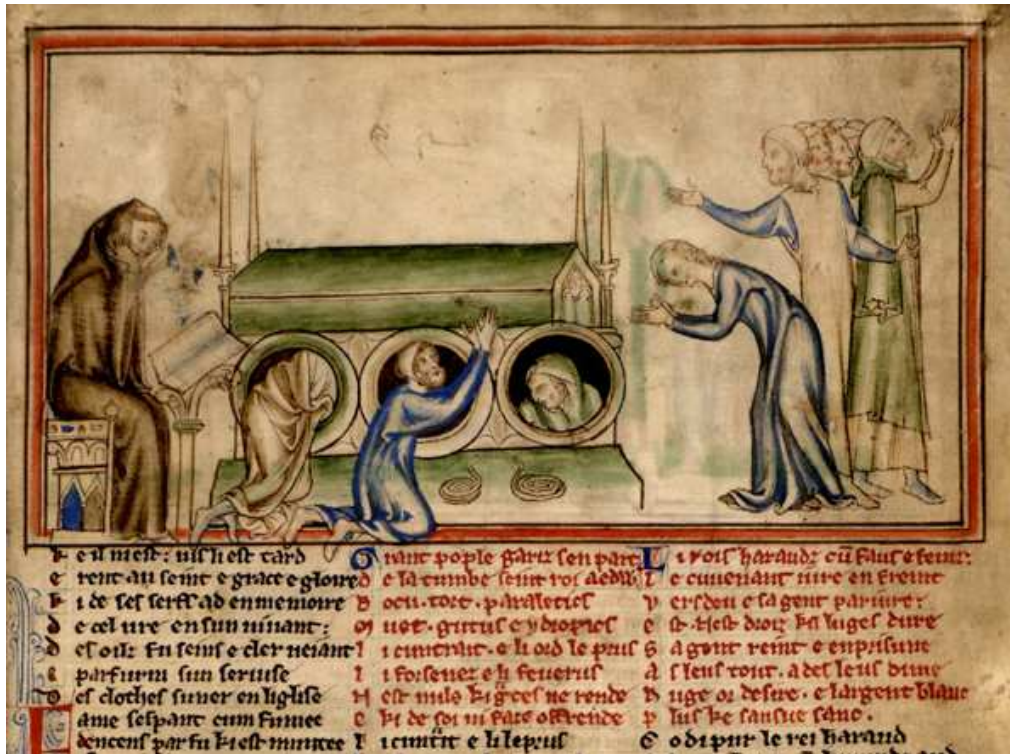 k e il mest : vis li est tard
e rent au seint e grace e gloire
k i de ses serfs ad en memoire
d e cel ure en sun vivant :
d es oilz fu seins e cler veiant
e parfurni sun servise
d es cloches suner en liglise
L ame sespant cum fumee
dencens par fu ki est muntee
G rant pople gariz sen part
d e la tumbe seint roi aedw
B ocu . tort . paraletics
M uet . gutus e ydropics
l i cuntrait . e li ord leprus
l i forsenez e li feverus
N est nuls ki gces ne rende
e ki de soi ni face offrende
l i e li leprus
L i rois haraudz cū faus e feluns :
l e cuvenant jure enfreint
v ers deu e sa gent parjure :
e st . nest droiz ke lunges dure
S a gent reint e enprisune
A s leus tout . a des leus dune
H uge or desire . e largent blanc
p lus ke sansue sanc .
C o di pur le rei haraud